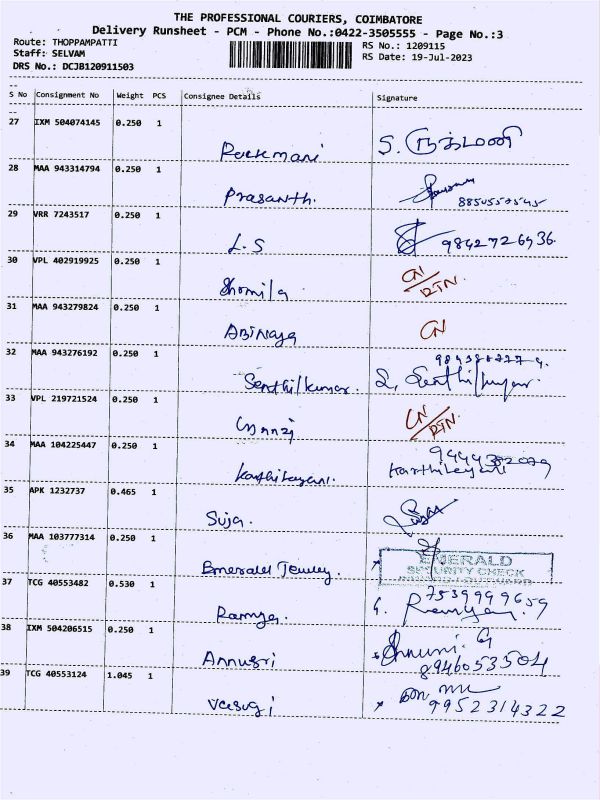 THE PROFESSIONAL COURIERS, COIMBATORE
Delivery Runsheet - PCM - Phone No.:0422-3505555 - Page No.:3
Route: THOPPAMPATTI
RS No.: 1209115
Staff: SELVAM
RS Date: 19-Jul-2023
DRS No.: DCJB120911503
S No Consignment No Weight PCS Consignee Details Signature
27 IXM 504074145 0.250 1
Rukmani S. ருக்மணி
28 MAA 943314794 0.250 1
Prasanth.
29 VRR 7243517 0.250 1
L.S 9842726936.
30 VPL 402919925 0.250 1
Shomila CN/RTN
31 MAA 943279824 0.250 1
ABiNaya CN
32 MAA 943276192 0.250 1
Senthilkumar. S. Senthilkumar.
33 VPL 219721524 0.250 1
CN/RTN
34 MAA 104225447 0.250 1
9444382079
Karthikayani. Karthikayani
35 APK 1232737 0.465 1
Suja.
36 MAA 103777314 0.250 1
EMERALD
SECURITY CHECK
Emerald Jewley
37 TCG 40553482 0.530 1
7539999659
Ramya. G. Ramya.
38 IXM 504206515 0.250 1
Annusri Annuni. G
8946053504
39 TCG 40553124 1.045 1
Vasugi 9952314322